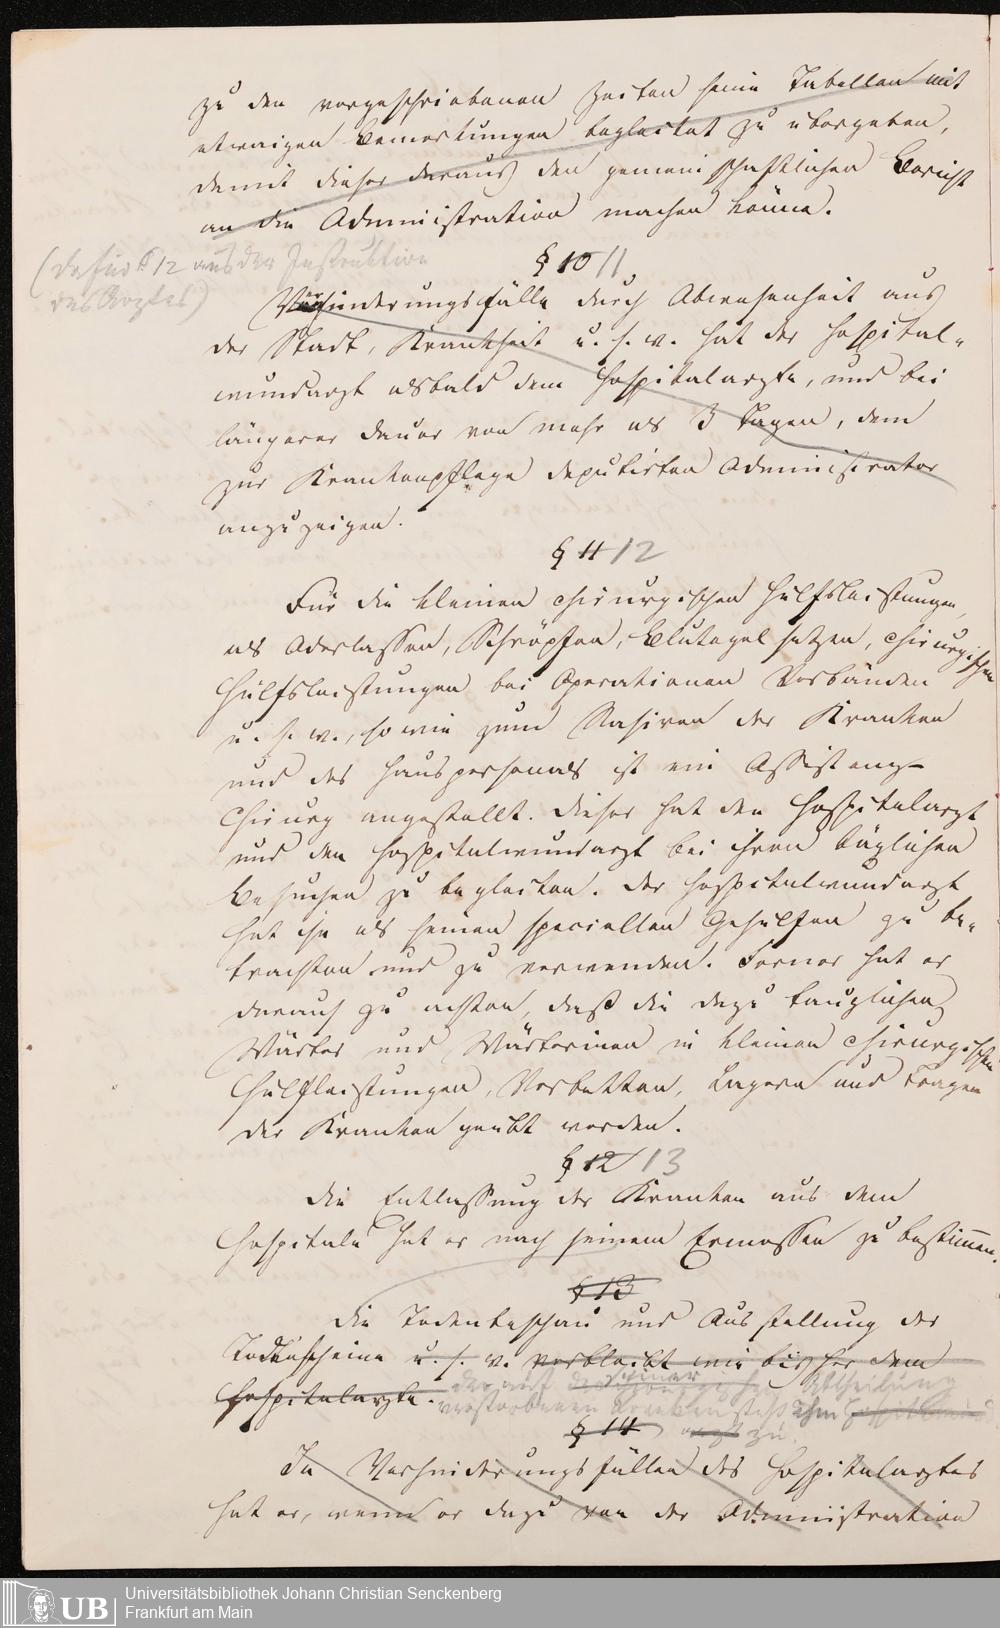 zu den vorgeschriebenen Zeiten seine Tabellen mit
etwaigen Bemerkungen begleitet zu übergeben,
damit dieser daraus den gemeinschaftlichen Bericht
an die Administration machen könne.
§ 10 11
(dafür § 12 aus der Instruktion
des Arztes)
Verhinderungsfälle durch Abwesenheit aus
der Stadt, Krankheit u. s. w. hat der Hospital-
wundarzt alsbald dem Hospitalarzte, und bei
längerer Dauer von mehr als 3 Tagen, dem
zur Krankenpflege deputirten Administrator
anzuzeigen.
§ 11 12
Für die kleinen chirurgischen Hülfsleistungen,
als Aderlassen, Schröpfen, Blutegel setzen, chirurgischen
Hülfsleistungen bei Operationen Verbänden
u. s. w., so wie zum Rasiren der Kranken
und des Hauspersonals ist ein Assistenz-
Chirurg angestellt. Dieser hat den Hospitalarzt
und den Hospitalwundarzt bei ihren täglichen
Besuchen zu begleiten. Der Hospitalwundarzt
hat ihn als seinen speciellen Gehülfen zu be-
trachten und zu verwenden. Ferner hat er
darauf zu achten, daß die dazu tauglichen
Wärter und Wärterinen in kleinen chirurgischen
Hülfleistungen, Verbetten, Lagern und Tragen
der Kranken geübt werden.
§ 12 13
Die Entlassung der Kranken aus dem
Hospitale hat er nach seinem Ermessen zu bestimmen.
§ 13
Die Todenbeschau und Ausstellung der
Todtenscheine u. s. w. verbleibt wie bisher dem
Hospitalarzte. der auf seiner Abtheilung
verstorbenen Kranken steht ihm
§ 14 zu.
In Verhinderungsfällen des Hospitalarztes
hat er, wenn er dazu von der Administration
Universitätsbibliothek Johann Christian Senckenberg
Frankfurt am Main
UB